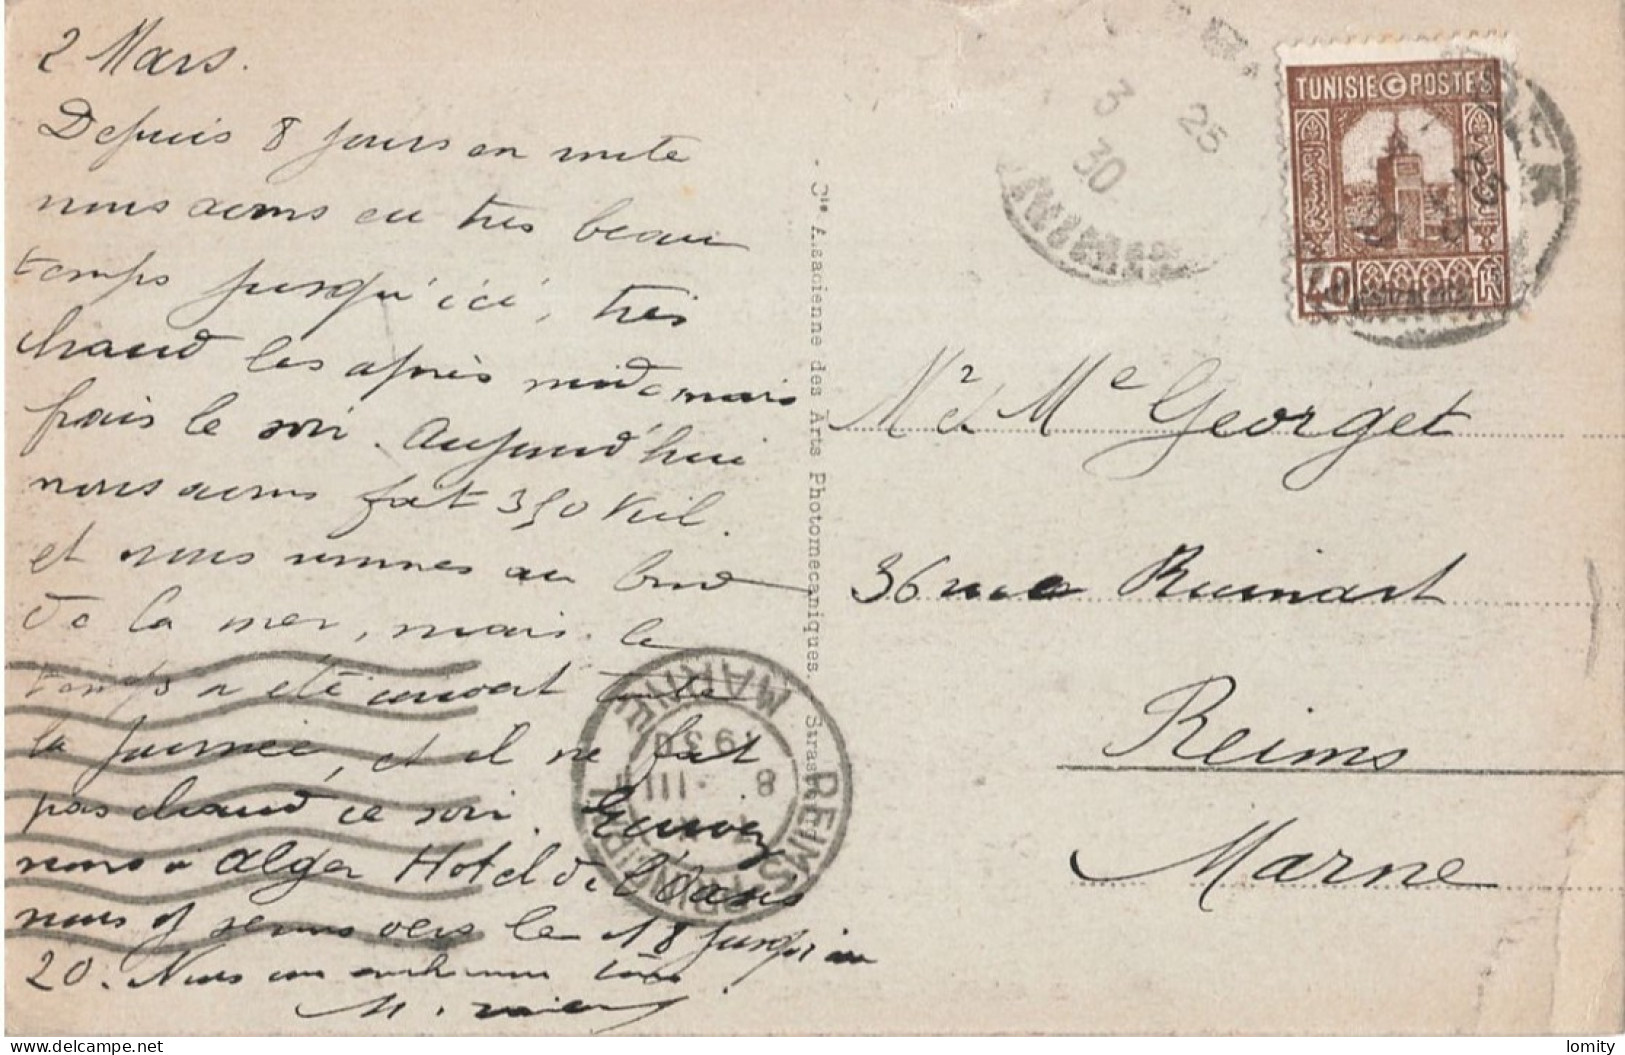 2 Mars.
Depuis 8 jours en route
nous avons eu très beau
temps jusqu'ici, très
chaud les après midi mais
frais le soir. Aujourd'hui
nous avons fait 350 Kil.
et nous sommes au bord
de la mer, mais le
temps a été couvert toute
la journée, et il ne fait
pas chaud ce soir. Ecrivez
nous à Alger Hotel de l'Oasis
nous y serons vers le 18 jusqu'au
20. Nous vous embrassons tous
M.
Cie Alsacienne des Arts Photomécaniques, Strasbourg
TUNISIE POSTES
40
3 25
30
REIMS PRINCIPAL
8 III
1930
MARNE
Mr et Me Georget
36 rue Ruinart
Reims
Marne
delcampe.net
lomity